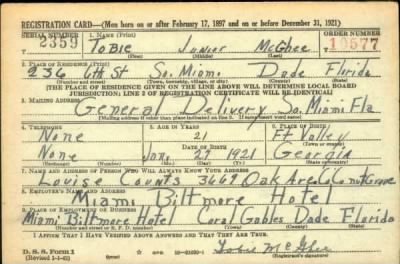 REGISTRATION CARD—(Men born on or after February 17, 1897 and on or before December 31, 1921)
SERIAL NUMBER 1. NAME (Print) ORDER NUMBER
2359 Tobie Junior McGhee 10577
(First) (Middle) (Last)
2. PLACE OF RESIDENCE (Print)
236 6th St So. Miami Dade Florida
(Number and street) (Town, township, village, or city) (County) (State)
[THE PLACE OF RESIDENCE GIVEN ON THE LINE ABOVE WILL DETERMINE LOCAL BOARD
JURISDICTION; LINE 2 OF REGISTRATION CERTIFICATE WILL BE IDENTICAL]
3. MAILING ADDRESS
General Delivery So. Miami Fla
[Mailing address if other than place indicated on line 2. If same insert word same]
4. TELEPHONE 5. AGE IN YEARS 6. PLACE OF BIRTH
None 21 Ft Valley
DATE OF BIRTH (Town or county)
None Jan. 27 1921 Georgia
(Exchange) (Number) (Mo.) (Day) (Yr.) (State or country)
7. NAME AND ADDRESS OF PERSON WHO WILL ALWAYS KNOW YOUR ADDRESS
Louise Counts 3669 Oak Ave Coconut Grove
8. EMPLOYER'S NAME AND ADDRESS
Miami Biltmore Hotel
9. PLACE OF EMPLOYMENT OR BUSINESS
Miami Biltmore Hotel Coral Gables Dade Florida
(Number and street or R. F. D. number) (Town) (County) (State)
I AFFIRM THAT I HAVE VERIFIED ABOVE ANSWERS AND THAT THEY ARE TRUE.
D. S. S. Form 1
(Revised 1-1-42) (over) Tobie McGhee